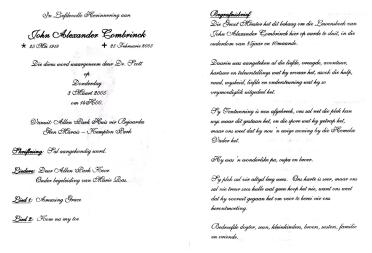 In Liefdevolle Herinnering aan
John Alexander Combrinck
Die diens word waargeneem deur Ds. Scott
op
Donderdag
3 Maart 2005
om 14H00.
Vanuit: Allen Park Huis vir Bejaardes
Glen Marais – Kempton Park
Skriflesing: Sal aangekondig word.
Liedere: Deur Allen Park Koor
Onder begeleiding van Marie Ras.
Lied 1: Amazing Grace
Lied 2: Kom na my toe
Begrafnisbrief
Die Groot Meester het dit behaag om die Lewensboek van
John Alexander Combrinck hier op aarde te sluit, in die
ouderdom van jaar en 10maande.
Daarin was aangeteken al die liefde, vreugde, avonture,
hartseer en teleurstellings wat hy ervaar het, asook die hulp,
raad, wysheid, liefde en ondersteuning wat hy so
vrymoediglik uitgedeel het.
Sy Tentwoning is nou afgebreek, ons sal net die plek kan
wys waar dit gestaan het, en die spore wat hy getrap het,
maar ons weet dat hy nou 'n ewige woning by die Hemelse
Vader het.
Hy was 'n wonderlike pa, oupa en broer.
Sy plek sal nie altyd leeg wees. Ons harte is seer, maar ons
sal nie treur soos hulle wat geen hoop het nie, want ons weet
dat hy vooruit gegaan het om voor te berei vir ons
herontmoeting.
Bedroefde dogter, seun, kleinkinders, broer, susters, familie
en vriende.